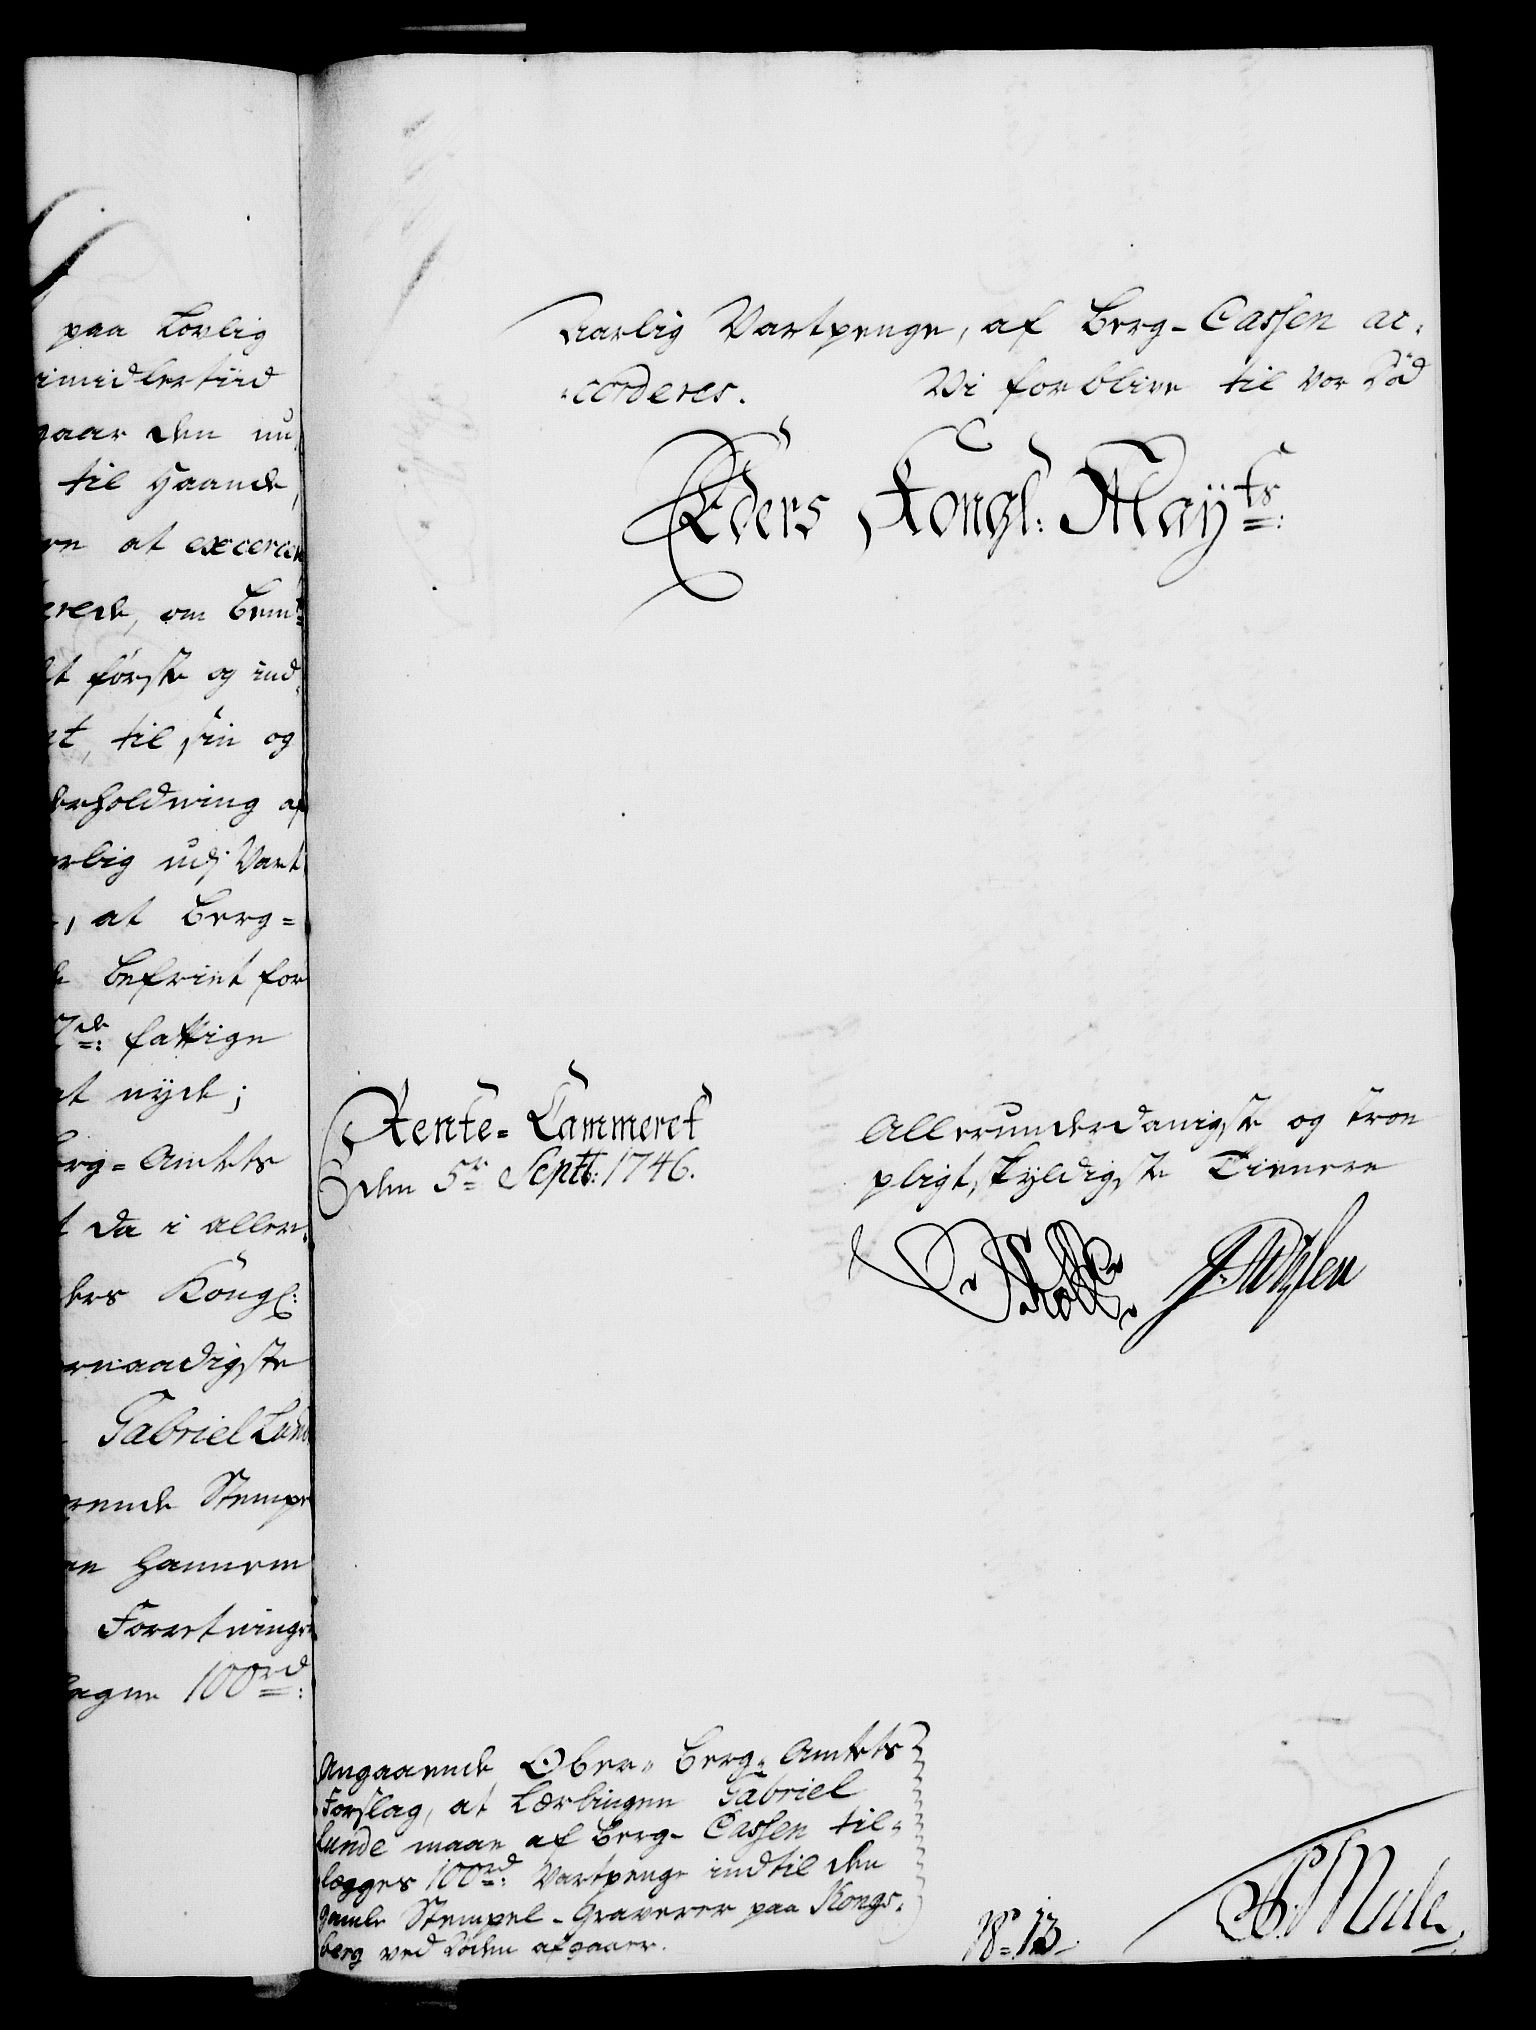 paa Lovlig
imidlertiid
gaar den nu
til Haande,
at excerce
om bem:te
første og ind
til sin og
erholdning af
udj Vart
at Berg=
befriet for
fattige
at nyde;
Berg=Amtets
da i aller
Kongl:
naadigste
Gabriel Lund
Stempe
hannem
Forretnings
100 rd:
Aarlig Vartpenge, af Berg-Cassen ac-
-corderes. Vi forblive til vor Død
Eders Kongl: May:ts
Rente-Cammeret
den 5te Septb: 1746.
Allerunderdanigste og troe
pligtskyldigste Tienere
Angaaende Ober-Berg-Amtets
Forslag, at Lærlingen Gabriel
Lunde maae af Berg-Cassen til-
lægges 100 rd: Vartpenge indtil den
gamle Stempel-Graverer paa Kongs-
berg ved Døden afgaaer.
No 13.
Mule